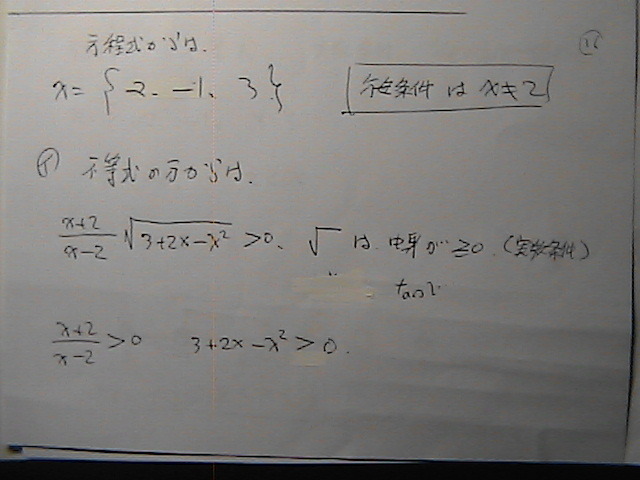 方程式の方は、
x = { -2、-1、3 }
存在条件は x ≠ 2
不等式の方は、
\frac{x+2}{x-2} \sqrt{3+2x-x^2} > 0、 √ は、中身が ≥0、(実数条件)
なので
\frac{x+2}{x-2} > 0 3+2x-x^2 > 0.